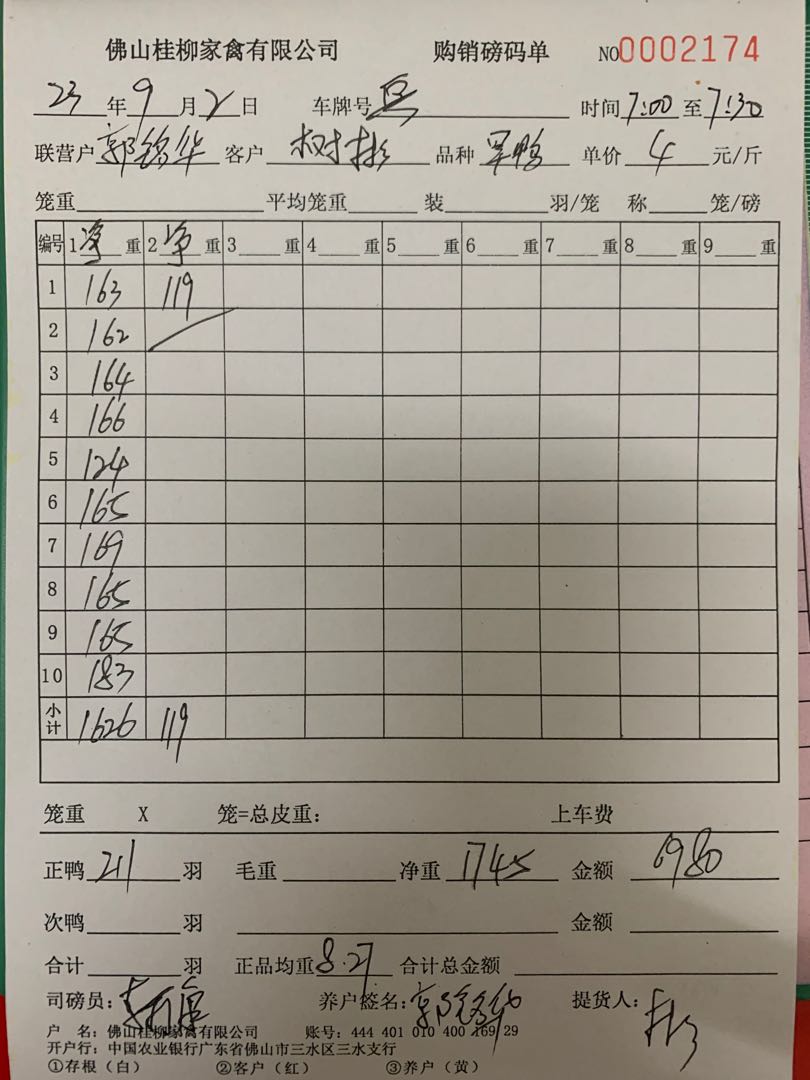 佛山桂柳家禽有限公司 购销磅码单 NO0002174
23年9月2日 车牌号 时间7:00至7:30
联营户郭锦华 客户树彬 品种旱鸭 单价4元/斤
笼重 平均笼重 装 羽/笼 称 笼/磅
编号 1净重 2净重 3 重 4 重 5 重 6 重 7 重 8 重 9 重
1 163 119
2 162
3 164
4 166
5 124
6 165
7 169
8 165
9 165
10 183
小计 1626 119
笼重 X 笼=总皮重: 上车费
正鸭211羽 毛重 净重1745 金额6980
次鸭 羽 金额
合计 羽 正品均重8.27 合计总金额
司磅员: 养户签名:郭锦华 提货人:彬
户 名:佛山桂柳家禽有限公司 账号:444 401 010 400 169 29
开户行:中国农业银行广东省佛山市三水区三水支行
①存根(白) ②客户(红) ③养户(黄)